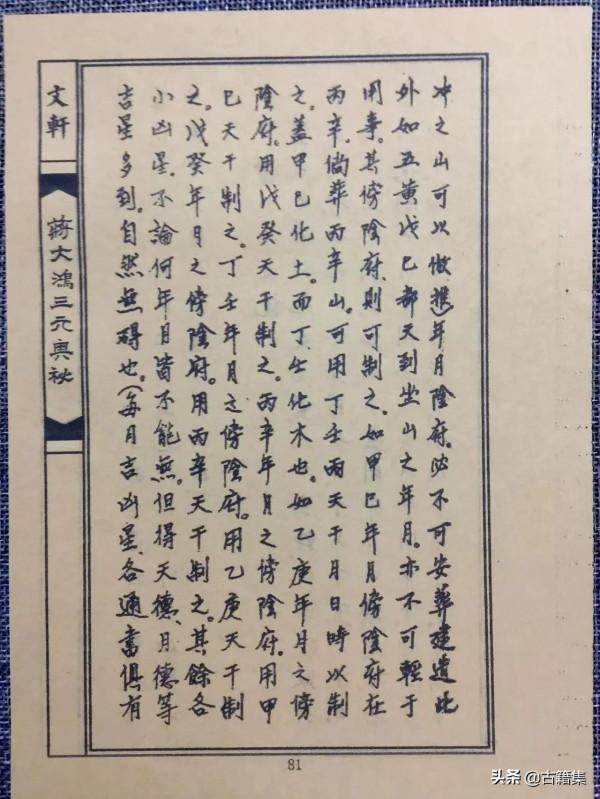 冲之山可以倣推)年月陰府。必不可安葬建造此
外如五黃戊己都天到坐山之年月。亦不可輕于
用事。其傍陰府則可制之。如甲巳年月傍陰府在
丙辛。倘葬丙辛山。可用丁壬兩天干月日時以制
之。蓋甲巳化土。而丁壬化木也。如乙庚年月之傍
陰府。用戊癸天干制之。丙辛年月之傍陰府。用甲
巳天干制之。丁壬年月之傍陰府。用乙庚天干制
之。戊癸年月之傍陰府。用丙辛天干制之。其餘各
小凶星。不論何年月皆不能無。但得天德、月德等
吉星多到。自然無碍也。(每月吉凶星、各通書俱有
文軒
蔣大鴻三元奧秘
81
头条 @古籍集